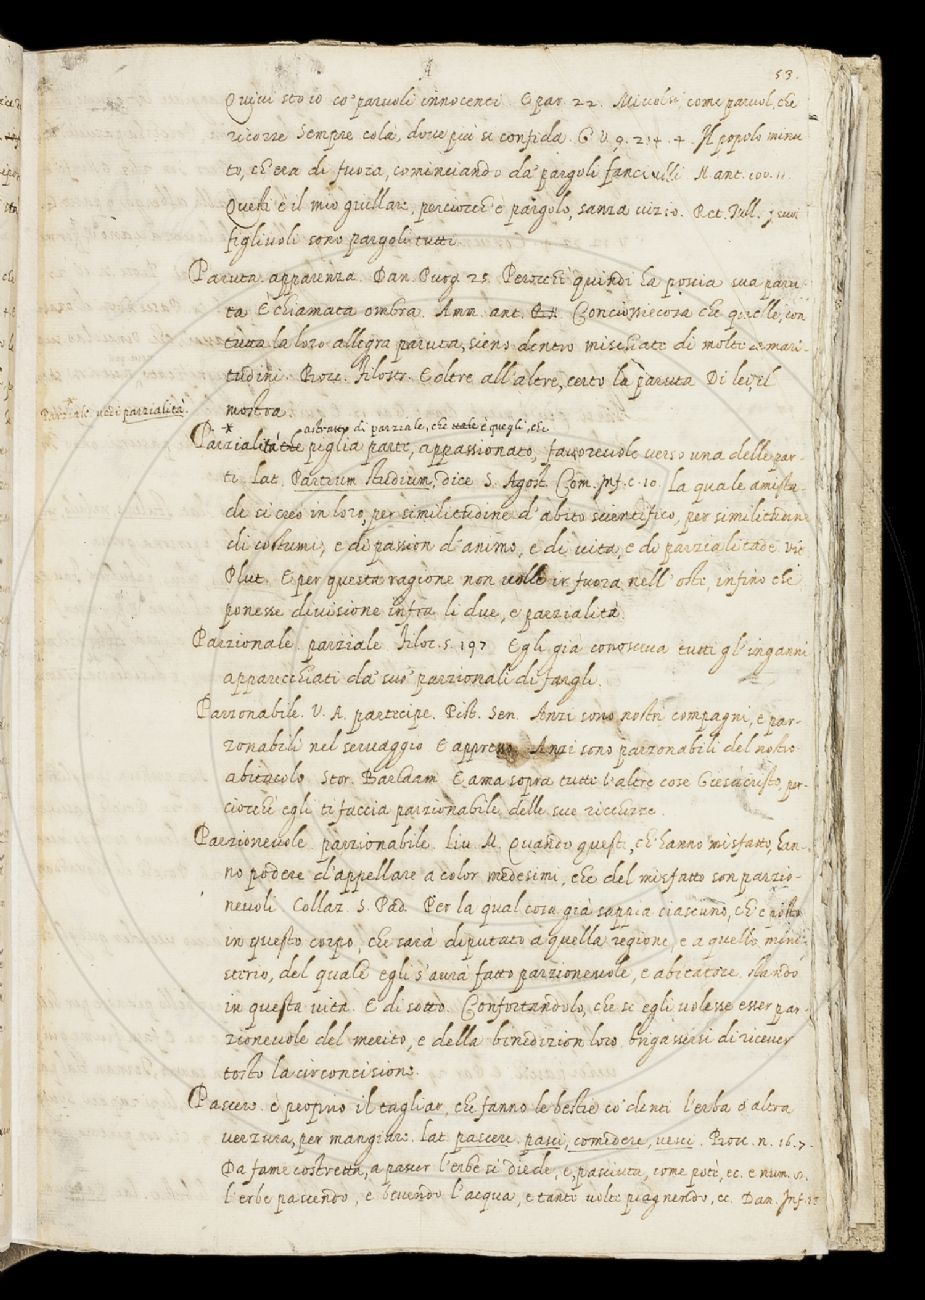 53.
Quivi sto io co' parvoli innocenti. E par. 22. Mi volsi come parvol, che
ricorre sempre colà, dove più si confida. G. V. 9. 214. 4. Il popolo minu
to, ch'era di fuora, cominciando da' pargoli fanciulli. M. ant.
Questi è il mio giullare, perciocch' è pargolo, sanza vizio. Ret. Tull. I suoi
figliuoli sono pargoli tutti.
Paruta. apparenza. Dan. Purg. 25. Perocchè quindi ha poscia sua paru-
ta È chiamata ombra. Amm. ant. Conciossiecosa che quelle, con
tutta la loro allegra paruta, sieno dentro mischiate di molte amari-
tudini. Bocc. Filostr. E oltre all'altre, certo la paruta Di lei, il
mostra.
Parziale vedi parzialità.
astratto di parziale, che vale è quegli, che
Parzialità che piglia parte, appassionato, favorevole verso una delle par-
ti. Lat. Partium studium, dice S. Agost. Com. Inf. c. 10. La quale amista-
de si creò in loro, per similitudine d'abito scientifico, per similitudine
di costumi, e di passion d'animo, e di vita, e di parzialitade. Vit.
Plut. E per questa ragione non volle ir fuora nell' oste, infino che
ponesse divisione infra li due, e parzialità.
Parzionale. parziale. Filoc. 5. 197. Egli già conosceva tutti gl' inganni
apparecchiati da' suoi parzionali di fargli.
Parzonabile. V. A. partecipe. Pist. Sen. Anzi sono nostri compagni, e par-
zonabili nel servaggio. E appresso. Anzi sono parzonabili del nostro
abitacolo. Stor. Barlaam. E ama sopra tutte l'altre cose Giesù cristo, per-
ciocchè egli ti faccia parzionabile delle sue ricchezze.
Parzionevole. parzionabile. Liv. M. Quando questi, ch' hanno misfatto, han-
no podere d'appellare a color medesimi, che del misfatto son parzio-
nevoli. Collaz. S. Pad. Per la qual cosa già sappia ciascuno, ch' è posto
in questo corpo, che sarà diputato a quella regione, e a quello mini-
sterio, del quale egli s'avrà fatto parzionevole, e abitatore stando
in questa vita. E di sotto. Confortandolo, che se egli volesse esser par-
zionevole del merito, e della binedizion loro brigassersi di ricever
tosto la circoncisione.
Pascere. è proprio il tagliar, che fanno le bestie co' denti l'erba o altra
verzura, per mangiare. lat. pascere, pasci, comedere, vesci. Bocc. n. 16. 7.
Da fame costretta, a pascer l'erbe si diede, e, pasciuta, come potè, ec. e num. 8.
l'erbe pascendo, e bevendo l'acqua, e tante volte piagnendo, ec. Dan. Inf.